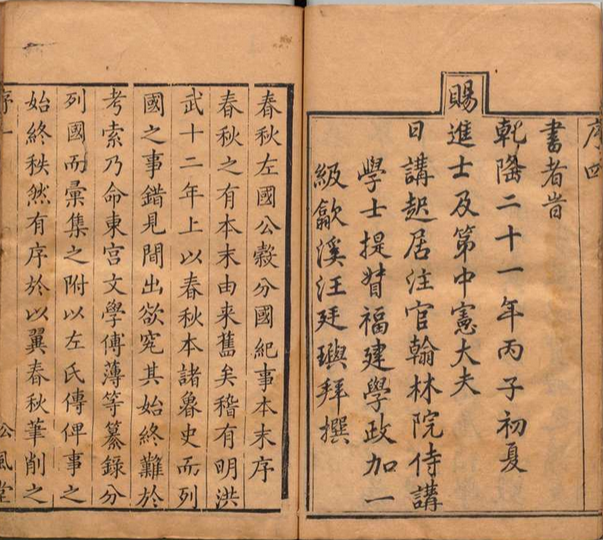 序四
書者旹
乾隆二十一年丙子初夏
賜
進士及第中憲大夫
日講起居注官翰林院侍講
學士提督福建學政加一
級歙溪汪廷璵拜撰
春秋左國公穀分國紀事本末序
春秋之有本末由来舊矣稽有明洪
武十二年上以春秋本諸魯史而列
國之事錯見間出欲究其始終難於
考索乃命東宮文學傅薄等纂錄分
列國而彙集之附以左氏傳俾事之
始終秩然有序於以翼春秋筆削之
序一
公風堂